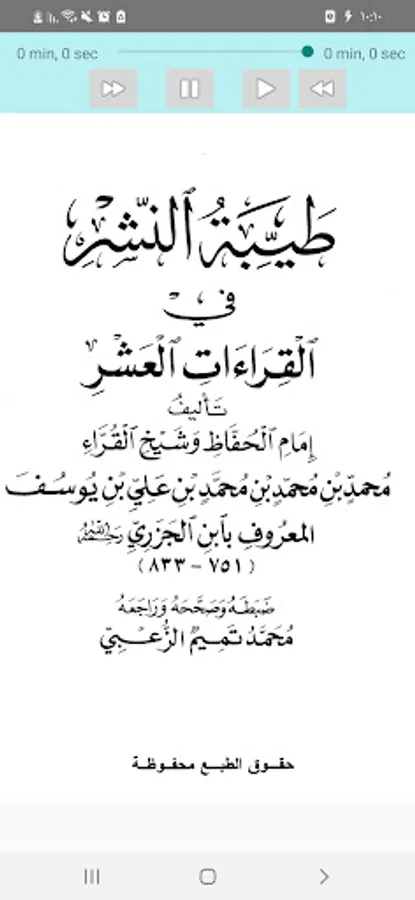 ١٠:١٠
0 min, 0 sec 0 min, 0 sec
طَيِّبَةُ النَّشْرِ
فِي
الْقِرَاءَاتِ الْعَشْرِ
تَأليفُ
إِمَامِ الْحُفَّاظِ وَشَيْخِ الْقُرَّاءِ
مُحَمَّدِ بْنِ مُحَمَّدِ بْنِ مُحَمَّدِ بْنِ عَلِيِّ بْنِ يُوسُفَ
المَعْرُوفِ بِابْنِ الْجَزَرِيِّ رَحِمَهُ اللَّهُ
(٧٥١ - ٨٣٣)
ضَبَطَهُ وَصَحَّحَهُ وَرَاجَعَهُ
مُحَمَّدُ تَمِيمُ الزُّعْبِيّ
حقوق الطبع محفوظة